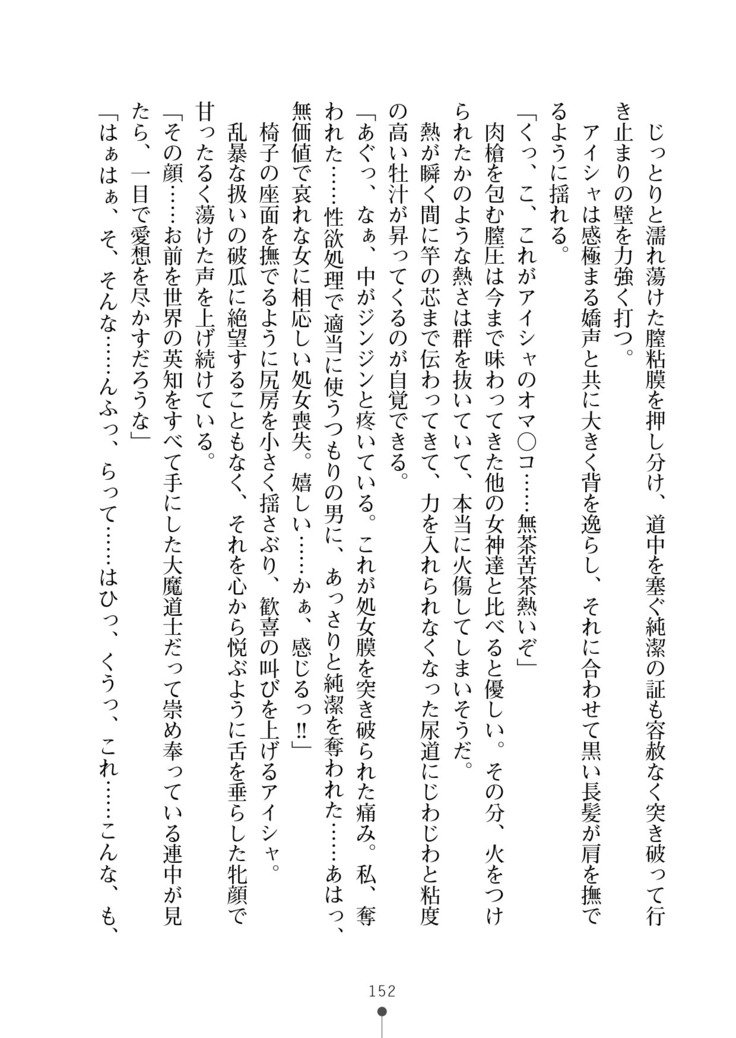 じっとりと濡れ蕩けた膣粘膜を押し分け、道中を塞ぐ純潔の証も容赦なく突き破って行
き止まりの壁を力強く打つ。
アイシャは感極まる嬌声と共に大きく背を逸らし、それに合わせて黒い長髪が肩を撫で
るように揺れる。
「くっ、こ、これがアイシャのオマ○コ……無茶苦茶熱いぞ」
肉槍を包む膣圧は今まで味わってきた他の女神達と比べると優しい。その分、火をつけ
られたかのような熱さは群を抜いていて、本当に火傷してしまいそうだ。
熱が瞬く間に竿の芯まで伝わってきて、力を入れられなくなった尿道にじわじわと粘度
の高い牡汁が昇ってくるのが自覚できる。
「あぐっ、なぁ、中がジンジンと疼いている。これが処女膜を突き破られた痛み。私、奪
われた……性欲処理で適当に使うつもりの男に、あっさりと純潔を奪われた……あはっ、
無価値で哀れな女に相応しい処女喪失。嬉しい……かぁ、感じるっ!!」
椅子の座面を撫でるように尻房を小さく揺さぶり、歓喜の叫びを上げるアイシャ。
乱暴な扱いの破瓜に絶望することもなく、それを心から悦ぶように舌を垂らした牝顔で
甘ったるく蕩けた声を上げ続けている。
「その顔……お前を世界の英知をすべて手にした大魔道士だって崇め奉っている連中が見
たら、一目で愛想を尽かすだろうな」
「はぁはぁ、そ、そんな……んふっ、らって……はひっ、くうっ、これ……こんな、も、
152